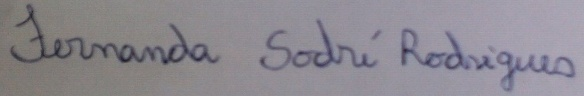 Fernanda Sodré Rodrigues